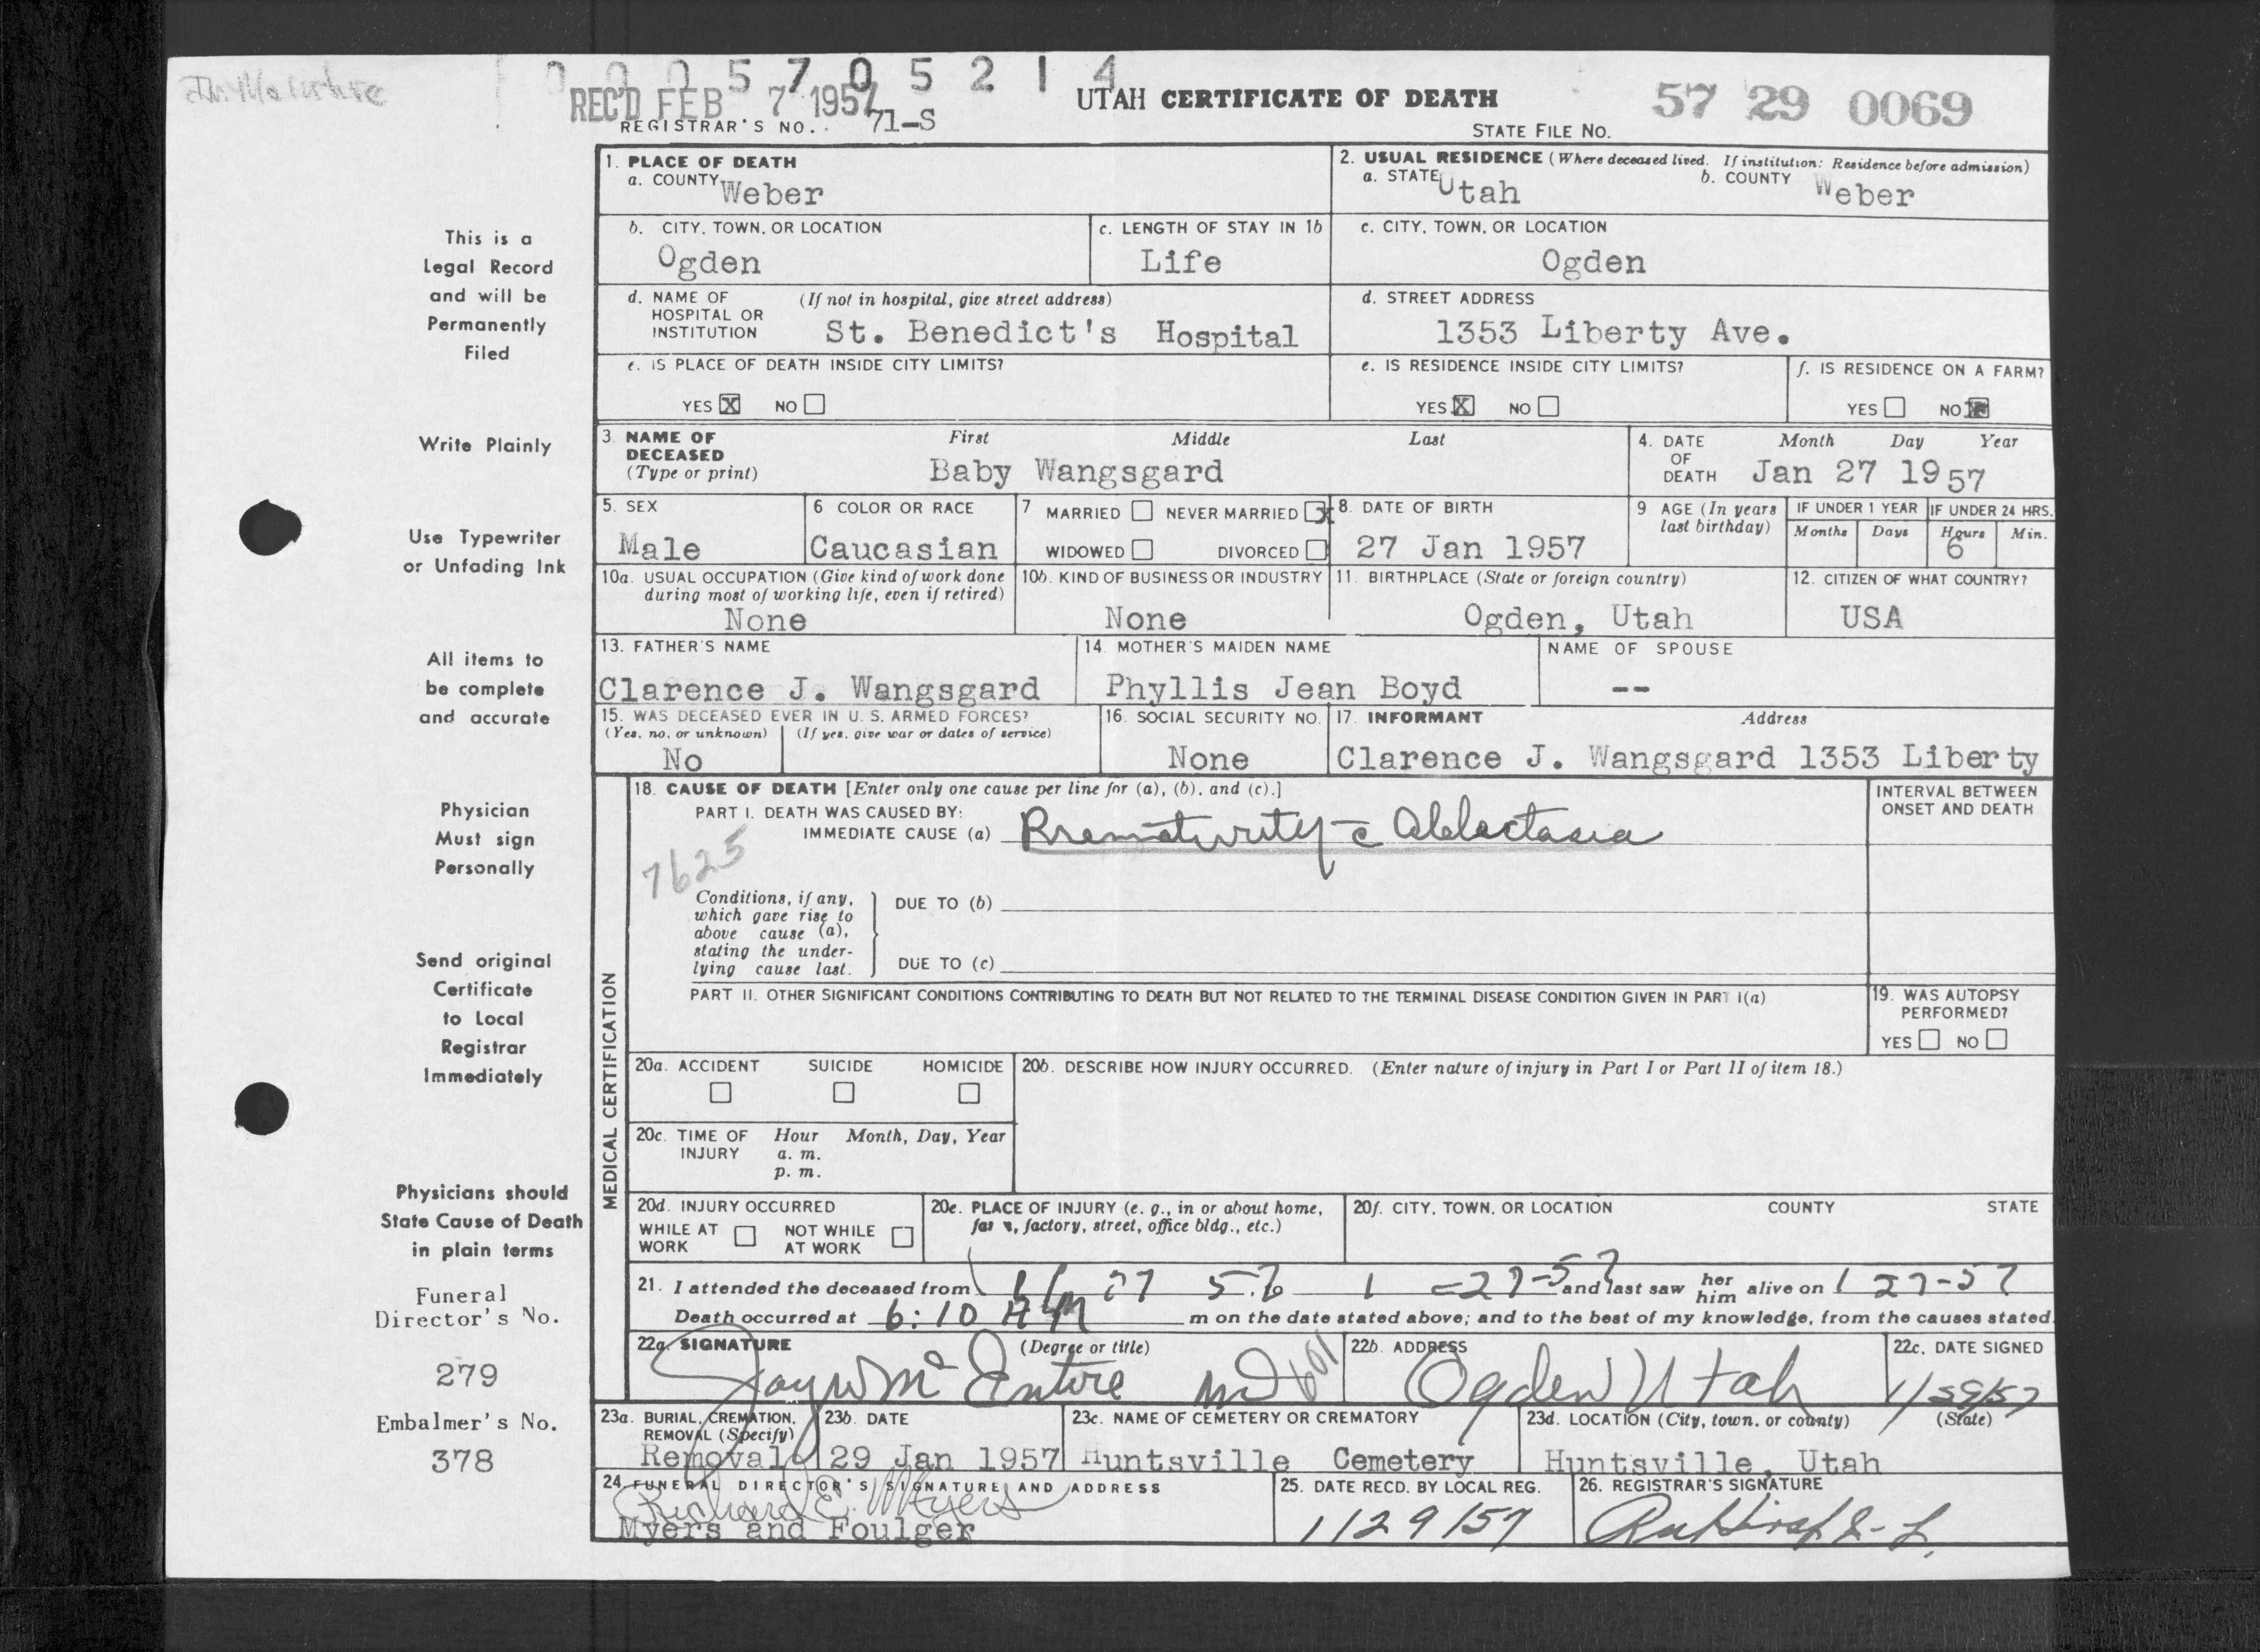 0 0 0 5 7 0 5 2 1 4
REC'D FEB 7 1957
UTAH CERTIFICATE OF DEATH
57 29 0069
REGISTRAR'S NO. 71-S
STATE FILE NO.
1. PLACE OF DEATH
a. COUNTY Weber
2. USUAL RESIDENCE (Where deceased lived. If institution: Residence before admission)
a. STATE Utah b. COUNTY Weber
b. CITY, TOWN, OR LOCATION
Ogden
c. LENGTH OF STAY IN 1b
Life
c. CITY, TOWN, OR LOCATION
Ogden
d. NAME OF HOSPITAL OR INSTITUTION (If not in hospital, give street address)
St. Benedict's Hospital
d. STREET ADDRESS
1353 Liberty Ave.
e. IS PLACE OF DEATH INSIDE CITY LIMITS?
YES X NO
e. IS RESIDENCE INSIDE CITY LIMITS?
YES X NO
f. IS RESIDENCE ON A FARM?
YES NO X
3. NAME OF DECEASED (Type or print)
First Middle Last
Baby Wangsgard
4. DATE OF DEATH
Month Day Year
Jan 27 1957
5. SEX
Male
6 COLOR OR RACE
Caucasian
7 MARRIED NEVER MARRIED X
WIDOWED DIVORCED
8. DATE OF BIRTH
27 Jan 1957
9 AGE (In years last birthday)
IF UNDER 1 YEAR
Months Days
IF UNDER 24 HRS.
Hours Min.
6
10a. USUAL OCCUPATION (Give kind of work done during most of working life, even if retired)
None
10b. KIND OF BUSINESS OR INDUSTRY
None
11. BIRTHPLACE (State or foreign country)
Ogden, Utah
12. CITIZEN OF WHAT COUNTRY?
USA
13. FATHER'S NAME
Clarence J. Wangsgard
14. MOTHER'S MAIDEN NAME
Phyllis Jean Boyd
NAME OF SPOUSE
--
15. WAS DECEASED EVER IN U. S. ARMED FORCES?
(Yes, no, or unknown) (If yes, give war or dates of service)
No
16. SOCIAL SECURITY NO.
None
17. INFORMANT Address
Clarence J. Wangsgard 1353 Liberty
MEDICAL CERTIFICATION
18. CAUSE OF DEATH [Enter only one cause per line for (a), (b), and (c).]
INTERVAL BETWEEN ONSET AND DEATH
PART I. DEATH WAS CAUSED BY:
IMMEDIATE CAUSE (a) Prematurity c̄ Atelectasia
7625
Conditions, if any, which gave rise to above cause (a), stating the underlying cause last.
DUE TO (b)
DUE TO (c)
PART II. OTHER SIGNIFICANT CONDITIONS CONTRIBUTING TO DEATH BUT NOT RELATED TO THE TERMINAL DISEASE CONDITION GIVEN IN PART I(a)
19. WAS AUTOPSY PERFORMED?
YES NO
20a. ACCIDENT SUICIDE HOMICIDE
20b. DESCRIBE HOW INJURY OCCURRED. (Enter nature of injury in Part I or Part II of item 18.)
20c. TIME OF INJURY Hour Month, Day, Year
a. m.
p. m.
20d. INJURY OCCURRED
WHILE AT WORK NOT WHILE AT WORK
20e. PLACE OF INJURY (e. g., in or about home, farm, factory, street, office bldg., etc.)
20f. CITY, TOWN, OR LOCATION COUNTY STATE
21. I attended the deceased from 1 27 57 1 -27-57 and last saw her him alive on 1 27-57
Death occurred at 6:10 AM m on the date stated above; and to the best of my knowledge, from the causes stated.
22a. SIGNATURE (Degree or title)
Jay W McEntire MD
22b. ADDRESS
Ogden Utah
22c. DATE SIGNED
23a. BURIAL, CREMATION, REMOVAL (Specify)
Removal
23b. DATE
29 Jan 1957
23c. NAME OF CEMETERY OR CREMATORY
Huntsville Cemetery
23d. LOCATION (City, town, or county) (State)
Huntsville, Utah
24. FUNERAL DIRECTOR'S SIGNATURE AND ADDRESS
Richard E. Myers
Myers and Foulger
25. DATE RECD. BY LOCAL REG.
1/29/57
26. REGISTRAR'S SIGNATURE
This is a
Legal Record
and will be
Permanently
Filed
Write Plainly
Use Typewriter
or Unfading Ink
All items to
be complete
and accurate
Physician
Must sign
Personally
Send original
Certificate
to Local
Registrar
Immediately
Physicians should
State Cause of Death
in plain terms
Funeral
Director's No.
279
Embalmer's No.
378